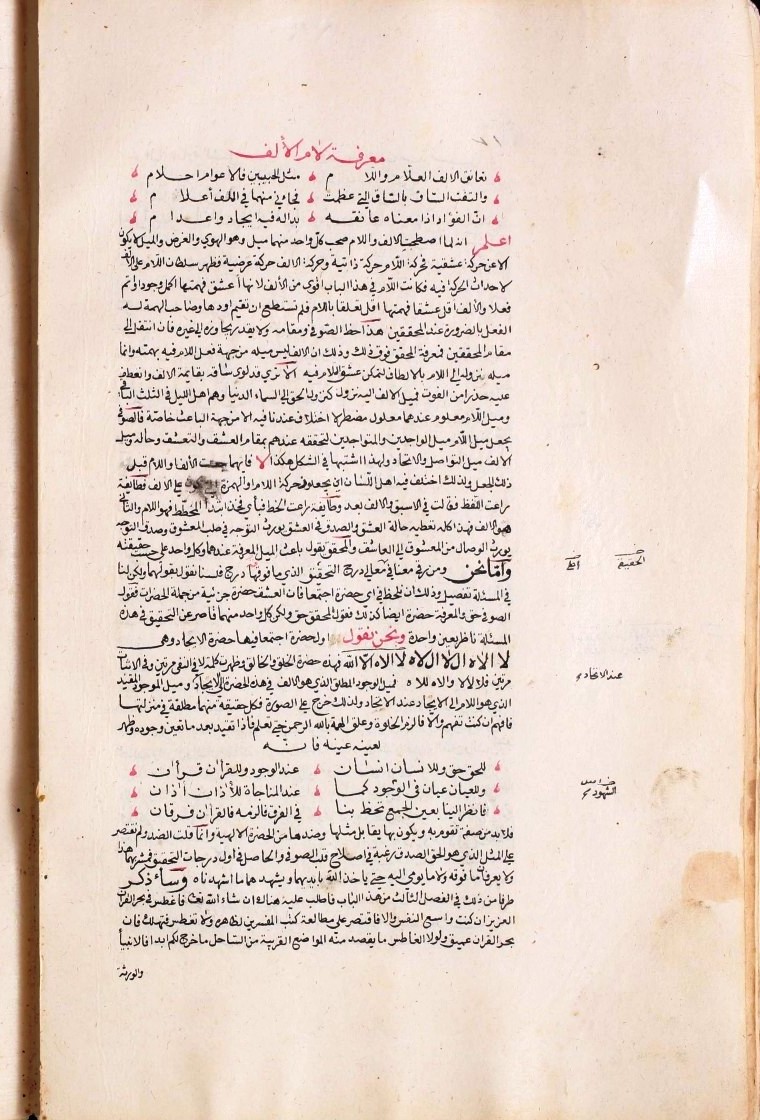 معرفة لام الألف
تعانق الالف العلّام واللا م مثل الحبيبين فالاعوام احلام
والتفت الساق بالساق التي عظمت فجاءني منهما في اللف أعلا م
ان الفواد اذا معناه عانقه بدا له فيه ايجاد واعدا م
اعلم انه لما اصطحب الالف واللام صحب كل واحد منهما ميل وهو الهوي والغرض والميل لا يكون
الا عن حركة عشقية فحركة اللام حركة ذاتية وحركة الالف حركة عرضية فظهر سلطان اللام على الالف
لاحداث الحركة فيه فكانت اللام في هذا الباب اقوى من الالف لانها أعشق فهمتها اكمل وجودا واتم
فعلا والالف اقل عشقا فهمتها اقل تعلقا باللام فلم تستطع ان تقيم اودها وصاحب الهمة له
الفعل بالضرورة عند المحققين هذا حظ الصوفي ومقامه ولا يقدر يجاوزه الى غيره فان انتقل الى
مقام المحققين فمعرفة المحقق فوق ذلك وذلك ان الالف ليس ميله من جهة فعل اللام فيه بهمته وانما
ميله نزوله الى اللام بالالطاف لتمكن عشق اللام فيه الا تري قد لوى ساقه بقايمة الالف وانعطف
عليه حذرا من الفوت فميل الالف اليه نزول كنزول الحق الى السماء الدنيا وهم اهل الليل في الثلث الباقي
وميل اللام معلوم عندهما معلول مضطر لا اختلاف عندنا فيه الا من جهة الباعث خاصة فالصوفي
يجعل ميل اللام ميل الواجدين والمتواجدين لتحققه عندهم بمقام العشق والتعشق وحاله وميل
الالف ميل التواصل والاتحاد ولهذا اشتبها في الشكل هكذا لا فايهما جعلت الالف او اللام قبل
ذلك الجعل ولذلك اختلف فيه اهل اللسان اين يجعلون حركة اللام او الهمزة التي تكون على الالف فطايفة
راعت اللفظ فقالت في الاسبق والالف بعد وطايفة راعت الخط فبأي فخذ ابتدأ المخطط فهو اللام والثاني
هو الالف فهذا كله تعطيه حالة العشق والصدق في العشق يورث التوجه في طلب المعشوق وصدق التوجه
يورث الوصال من المعشوق الى العاشق والمحقق يقول باعث الميل المعرفة عندهما وكل واحد على حسب حقيقته
واما نحن ومن رقي معنا في معالي درج التحقيق الذي ما فوقها درج فلسنا نقول بقولهما ولكن لنا
في المسئلة تفصيل وذلك ان تلحظ في اي حضرة اجتمعا فان العشق حضرة جزئية من جملة الحضرات فقول
الصوفي حق والمعرفة حضرة ايضا كذلك فقول المحقق حق ولكن كل واحد منهما قاصر عن التحقيق في هذه
المسئلة ناظر بعين واحدة ونحن نقول اول حضرة اجتمعا فيها حضرة الايجاد وهي
لا الاه ال لا ال لاه لا اله الا الله فهذه حضرة الخلق والخالق وظهرت كلمة لا في النفي مرتين وفي الاثبات
مرتين فلا لالا والاه للاه فميل الوجود المطلق الذي هو الالف في هذه الحضرة الى الايجاد وميل الموجود المقيد
الذي هو اللام الى الايجاد عند الايجاد ولذلك خرج على الصورة فكل حقيقة منهما مطلقة في منزلتها
فافهم ان كنت تفهم والا فالزم الخلوة وعلق الهمة بالله الرحمن حتى تعلم فاذا تقيد بعد ما تعين وجوده وظهر
لعينه عينه فانه
للحق حق وللانسان انسان عند الوجود وللقرآن قرآن
وللعيان عيان في الوجود كما عند المناجاة للآذان آذان
فانظر الينا بعين الجمع تحظ بنا في الفرق فالزمه فالقرآن فرقان
فلا بد من صفة تقوم به ويكون بها يقابل مثلها وضدها من الحضرة الالهية وانما قلت الضد ولم نقتصر
على المثل الذي هو الحق الصدق رغبة في اصلاح قلب الصوفي والحاصل في اول درجات التحقيق فمشربهما هذا
ولا يعرفان ما فوقه ولا ما نومي اليه حتى ياخذ الله بايديهما ويشهدهما ما اشهدناه وسأذكر
طرفا من ذلك في الفصل الثالث من هذا الباب فاطلب عليه هناك ان شاء الله تعالى فاغطس في بحر القرآن
العزيز ان كنت واسع النفس والا فاقتصر على مطالعة كتب المفسرين لظاهره ولا تغطس فتهلك فان
بحر القرآن عميق ولولا الغاطس ما يقصد منه المواضع القريبة من الساحل ما خرج لكم ابدا فالانبيا
والورثة
الحقيقة
عند الاتحاد
الشهود